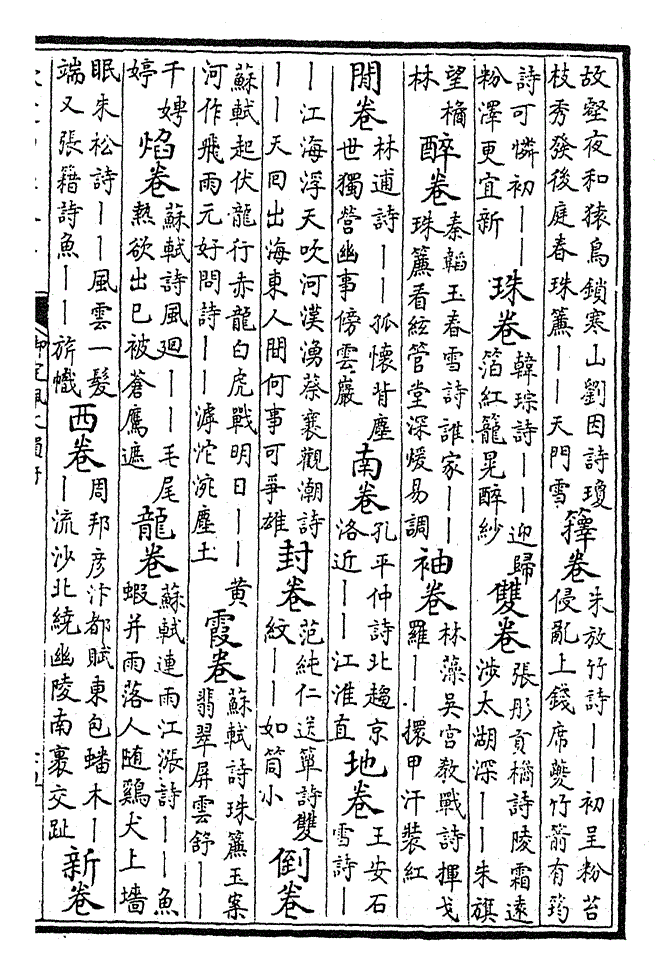 故壑夜和猿鳥鎖寒山劉因詩瓊枝秀發後庭春珠簾——天門雪籜卷朱放竹詩——初呈粉苔侵亂上錢席夔竹箭有筠
詩可憐初——粉澤更宜新珠卷韓琮詩——迎歸箔紅籠晃醉紗雙卷張彤貢橘詩陵霜遠涉太湖深——朱旗
望橘林醉卷秦韜玉春雪詩誰家——珠簾看絃管堂深煖易調袖卷林藻吳宮敎戰詩揮戈羅——擐甲汗裝紅
閒卷林逋詩——孤懷背塵世獨營幽事傍雲巖南卷孔平仲詩北趨京洛近——江淮直地卷王安石雪詩—
—江海浮天吹河漢湧蔡襄觀潮詩——天回出海東人間何事可爭雄封卷范純仁送簟詩雙紋——如筒小倒卷
蘇軾起伏龍行赤龍白虎戰明日——黄河作飛雨元好問詩——滹沱塵土霞卷蘇軾詩珠簾玉案翡翠屏雲舒——
千娉婷焰卷蘇軾詩風廻——毛尾熱欲出已被蒼鷹遮龍卷蘇軾連雨江漲詩——魚蝦并雨落人随鷄犬上墻
眠朱松詩——風雲一髪端又張籍詩魚——旂幟西卷周邦彦汴都賦東包蟠木——流沙北繞幽陵南裹交趾新卷